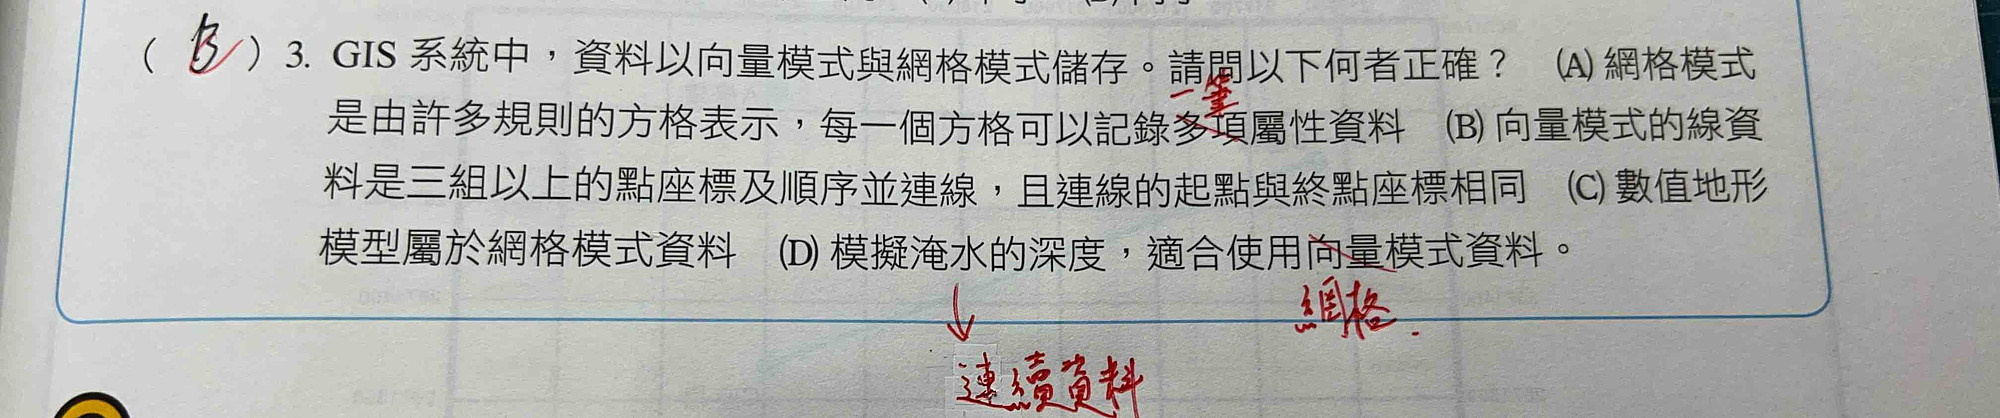 ( B ) 3. GIS 系統中，資料以向量模式與網格模式儲存。請問以下何者正確？ (A) 網格模式
一筆
是由許多規則的方格表示，每一個方格可以記錄多項屬性資料 (B) 向量模式的線資
料是三組以上的點座標及順序並連線，且連線的起點與終點座標相同 (C) 數值地形
模型屬於網格模式資料 (D) 模擬淹水的深度，適合使用向量模式資料。
網格.
連續資料